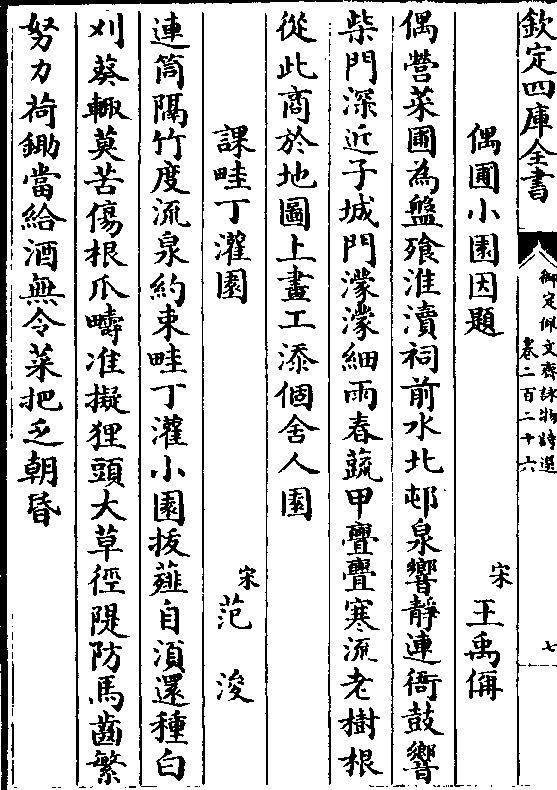 欽定四庫全書
御定佩文齋詠物詩選
卷二百二十六
七
偶圃小園因題
宋
王禹偁
偶營菜圃為盤飱淮瀆祠前水北邨泉響靜連衙鼓響
柴門深近子城門濛濛細雨春蔬甲亹亹寒流老樹根
從此商於地圖上畫工添個舍人園
課畦丁灌園
宋
范浚
連筒隔竹度流泉約束畦丁灌小園拔薤自須還種白
刈葵輙莫苦傷根爪疇准擬狸頭大草徑隄防馬齒繁
努力荷鋤當給酒無令菜把乏朝昏